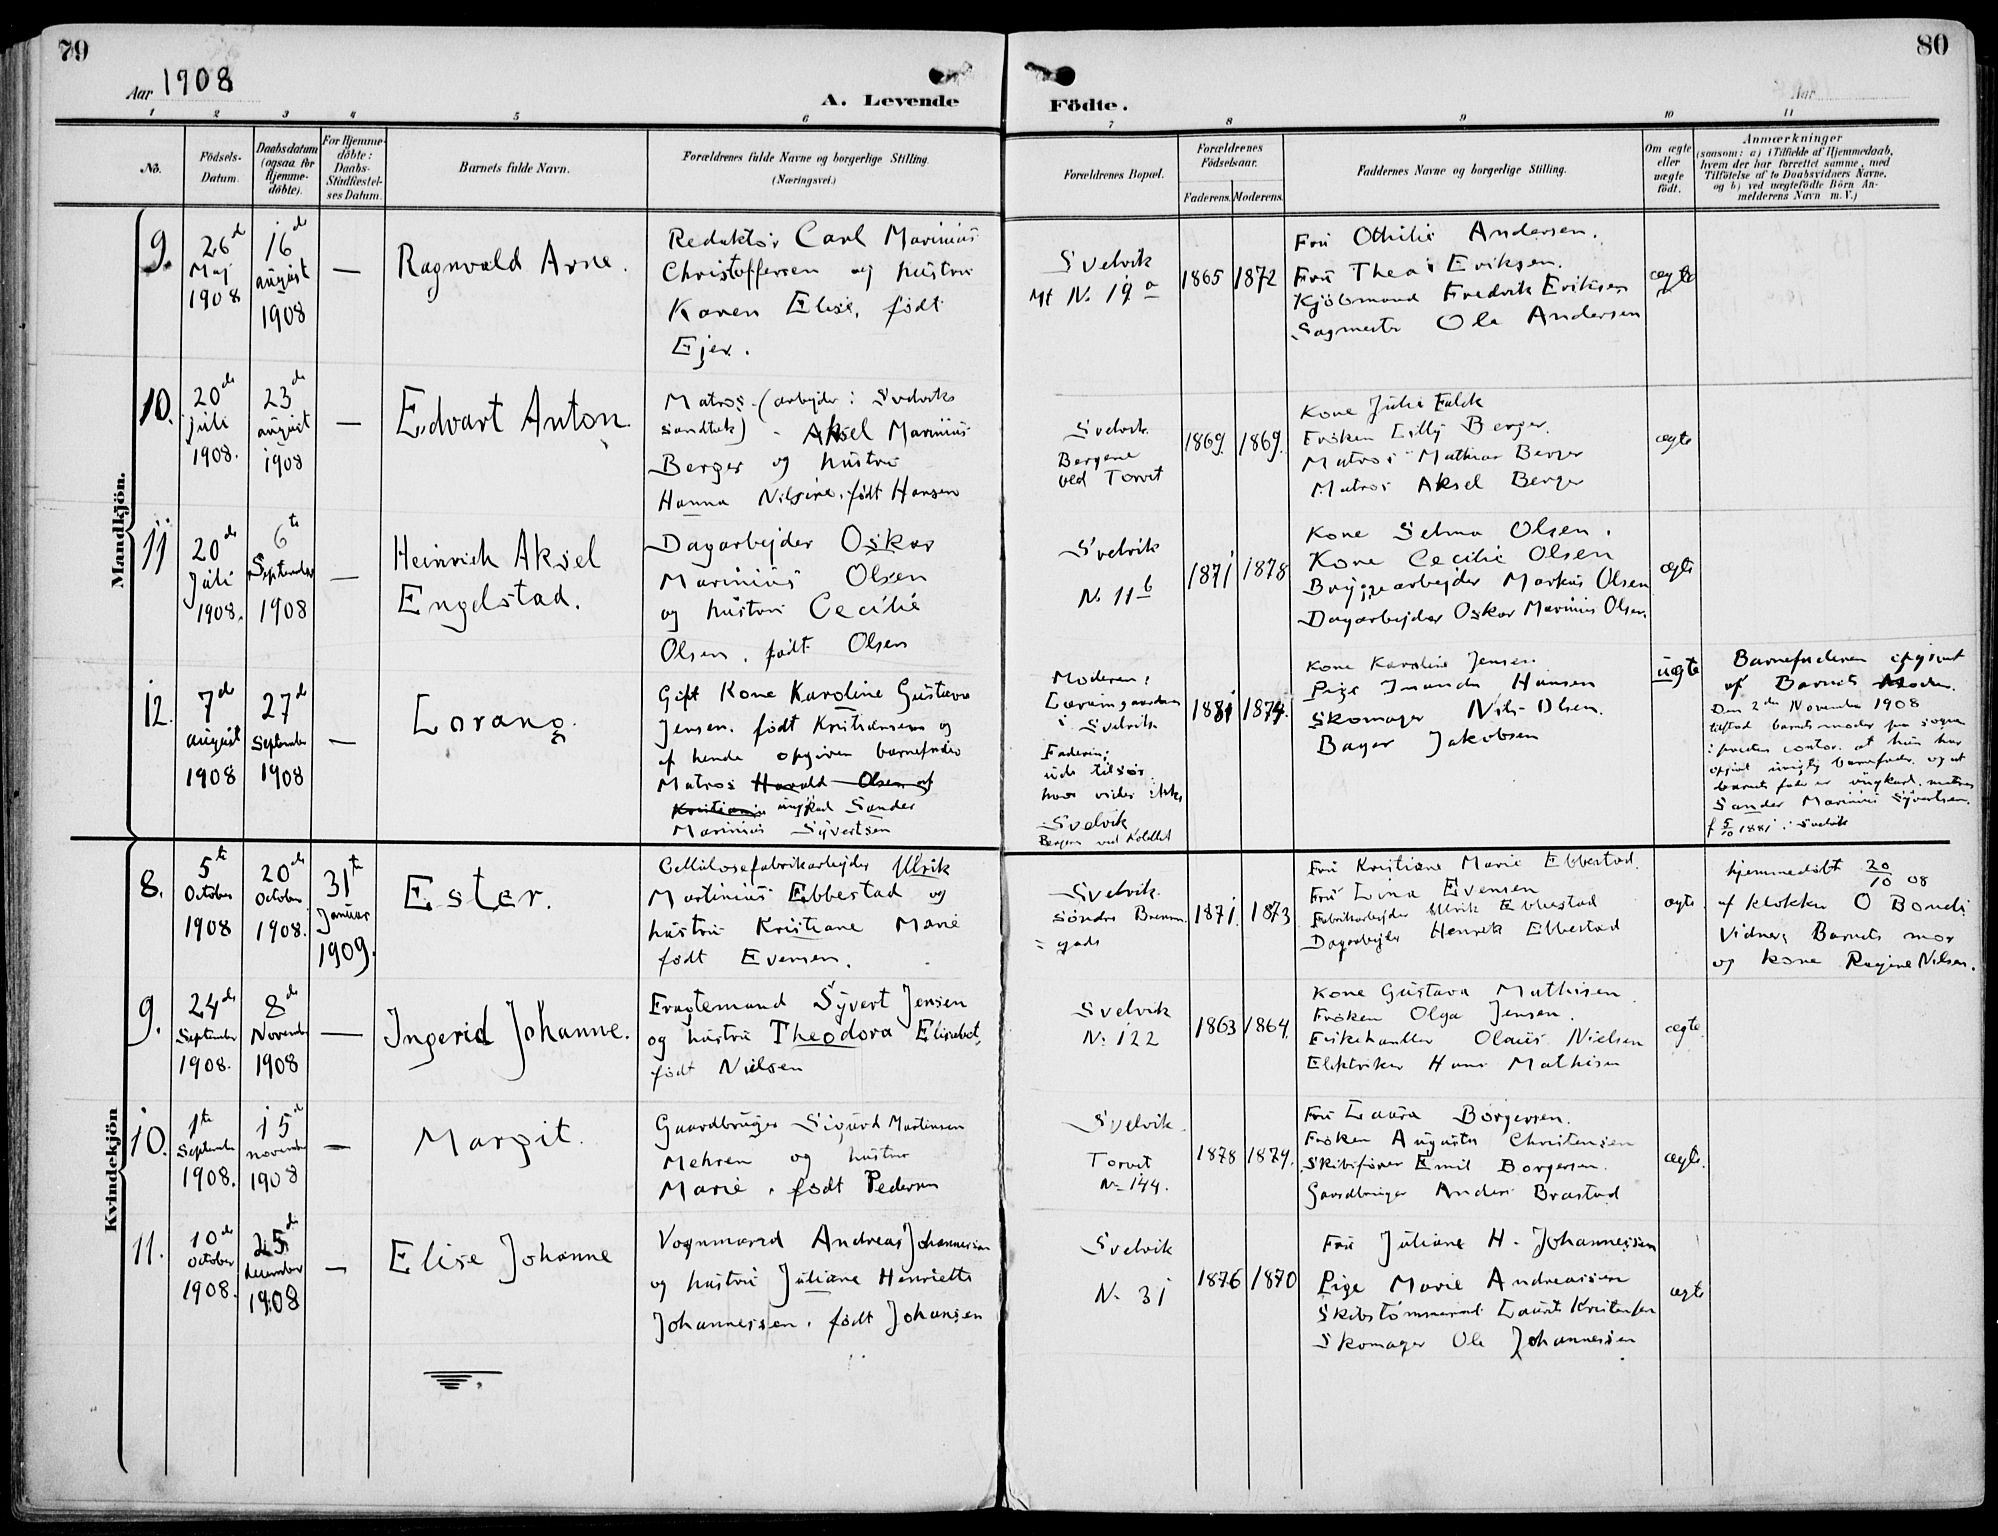 79
80
Aar 1908
Aar
A. Levende
Födte.
1
2
3
4
5
6
7
8
9
10
11
No.
Födsels-
Datum.
Daabsdatum
(ogsaa for
Hjemme-
döbte).
For Hjemme-
döbte:
Daabs-
Stadfæstel-
ses Datum.
Barnets fulde Navn.
Forældrenes fulde Navne og borgerlige Stilling.
(Næringsvei.)
Forældrenes Bopæl.
Forældrenes
Födselsaar.
Faderens.
Moderens.
Faddernes Navne og borgerlige Stilling.
Om ægte
eller
uægte
födt.
Anmærkninger
(saasom: a) i Tilfælde af Hjemmedaab,
hvem der har forrettet samme, med
Tilföielse af to Daabsvidners Navne,
og b) ved uægtefödte Börn An-
melderens Navn m. V.)
Mandkjön.
9.
26de
Maj
1908
16de
august
1908
—
Ragnvald Arne.
Redaktør Carl Marinius
Christoffersen og hustru
Karen Elise, født
Ejer.
Svelvik
Mt No 19 a
1865
1872
Fru Othilie Andersen.
Fru Thea Eriksen.
Kjøbmand Fredrik Eriksen
Sagmester Ole Andersen
ægte
10.
20de
juli
1908.
23de
august
1908
—
Edvart Anton
Matros (arbejder i Svelviks
sandtak) Aksel Marinius
Berger og hustru
Hanna Nilsine, født Hansen
Svelvik
Bergene
ved Torvet
1869
1869.
Kone Julie Falck
Frøken Lilly Berger.
Matros Mathias Berger
Matros Aksel Berger
ægte
11
20de
Juli
1908.
6te
September
1908
—
Heinrich Aksel
Engelstad.
Dagarbejder Oskar
Marinius Olsen
og hustru Cecilie
Olsen, født Olsen
Svelvik
No 11 b
1871
1878
Kone Selma Olsen.
Kone Cecilie Olsen
Bryggearbejder Markus Olsen
Dagarbejder Oskar Marinius Olsen.
ægte
12.
7de
august
1908
27de
September
1908
—
Lorang.
Gift Kone Karoline Gustava
Jensen, født Kristiansen og
af hende opgiven barnefader
Matros Harald Olsen af
Kristiania ungkarl Sander
Marinius Syvertsen
Moderen:
i Svelvik
Faderen:
ude tilsjøs.
hvor vides ikke
Svelvik
1881
1874.
Kone Karoline Jensen
Pige Hansen
Skomager Nils Olsen.
Bager Jakobsen
uægte
Barnefaderen opgivet
af Barnets Moder.
Den 2den November 1908
tilstod barnets moder paa sogne-
præstens contor, at hun har
opgivet urigtig barnefader, og at
barnets fader er ungkarl, matros
Sander Marinius Syvertsen,
f 5/10 1881 i Svelvik
Kvindekjön
8.
5te
October
1908
20de
October
1908.
31te
Januar
1909.
Ester.
Cellulosefabrikarbejder Ulrik
Martinius Ebbestad og
hustru Kristiane Marie
født Evensen.
Svelvik
Søndre Brenn-
gade
1871.
1873
Fru Kristiane Marie Ebbestad
Fru Lina Evensen
Fabrikarbejder Ulrik Ebbestad
Dagarbejder Henrik Ebbestad
ægte
hjemmedøbt 20/10 08
af klokker O Bondi
Vidner: Barnets mor
og kone Ragine Nilsen.
9.
24de
September
1908.
8de
November
1908
—
Ingerid Johanne.
Fragtemand Syvert Jensen
og hustru Theodora Elisabet,
født Nielsen
Svelvik
No 122
1863
1864.
Kone Gustava Mathisen
Frøken Olga Jensen.
Fiskehandler Olaus Nielsen
Elektriker Hans Mathisen
ægte
10.
1te
September
1908.
15de
november
1908
—
Margit.
Gaardbruger Sigurd Martinsen
Mehren og hustru
Marie, født Pedersen
Svelvik
Torvet
No 144.
1878
1874.
Fru Laura Borgersen.
Frøken Augusta Christensen
Skibsfører Emil Borgersen.
Gaardbruger Anders Brastad
ægte.
11.
10de
October
1908.
25de
december
1908
—
Elise Johanne
Vognmand Andreas Johannessen
og hustru Juliane Henriette
Johannessen, født Johansen
Svelvik
No 31
1876
1870
Fru Juliane H. Johannessen
Pige Marie Andreassen
Skibstømmermand Laurits Kristensen
Skomager Ole Johannessen
ægte